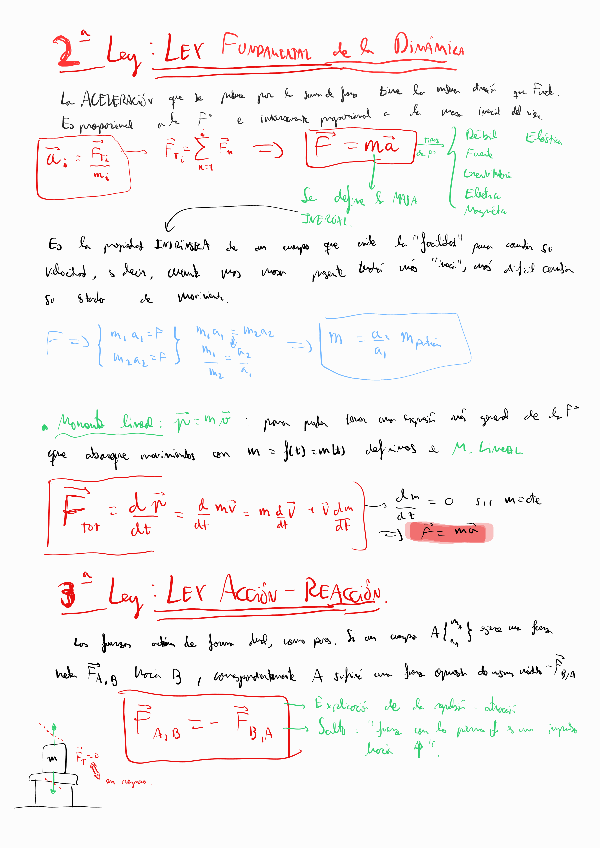 2ª Ley: LEY FUNDAMENTAL de la DINÁMICA
La ACELERACIÓN que se por la suma de tiene la misma que
Es proporcional a la F e inversamente proporcional a la masa inercial del
a⃗ᵢ = F⃗_Tᵢ / mᵢ → F⃗_Tᵢ = Σ_{n=1} F⃗ₙ => F⃗ = ma⃗
Débil Elástica
Fuerte
Eléctrica
Magnética
Se define la MASA
INERCIAL
Es la propiedad INTRÍNSECA de un cuerpo que mide la "facilidad" para cambiar su
velocidad, es decir, cuanta más masa tendrá más, más difícil cambiar
su estado de movimiento.
F => { m₁a₁ = F } m₁a₁ = m₂a₂ => m = a₂/a₁ m_patrón
{ m₂a₂ = F } m₁/m₂ = a₂/a₁
• Momento lineal: p⃗ = mv⃗ · para poder tener una expresión más general de la F
que abarque movimientos con m = f(t) = m(t) definimos el M. LINEAL
F⃗_tot = dp⃗/dt = d/dt mv⃗ = m d/dt v⃗ + v⃗ dm/dt → dm/dt = 0 sii m = cte
=> F⃗ = ma⃗
3ª Ley: LEY ACCIÓN - REACCIÓN.
Las fuerzas actúan de forma dual, como pares. Si un cuerpo A ejerce una fuerza
neta F⃗_A,B hacia B, correspondientemente A sufrirá una fuerza opuesta de mismo módulo -F⃗_B,A
F⃗_A,B = - F⃗_B,A
→ Explicación de la atracción
→ Salto: "fuerza con la pierna es un impulso
hacia ↑".
m
F⃗_T = 0
en